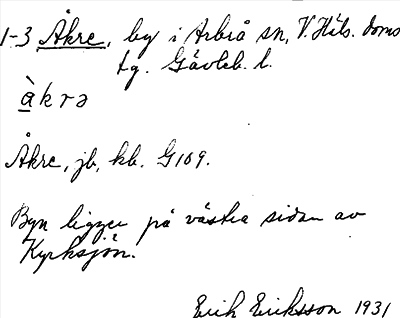 1-3 Åkre, by i Arbrå sn, V. Häls. doms
tg. Gävleb. l.
àkrə
Åkre, jb, kb. G109.
Byn ligger på västra sidan av
Kyrksjön.
Erik Eriksson 1931